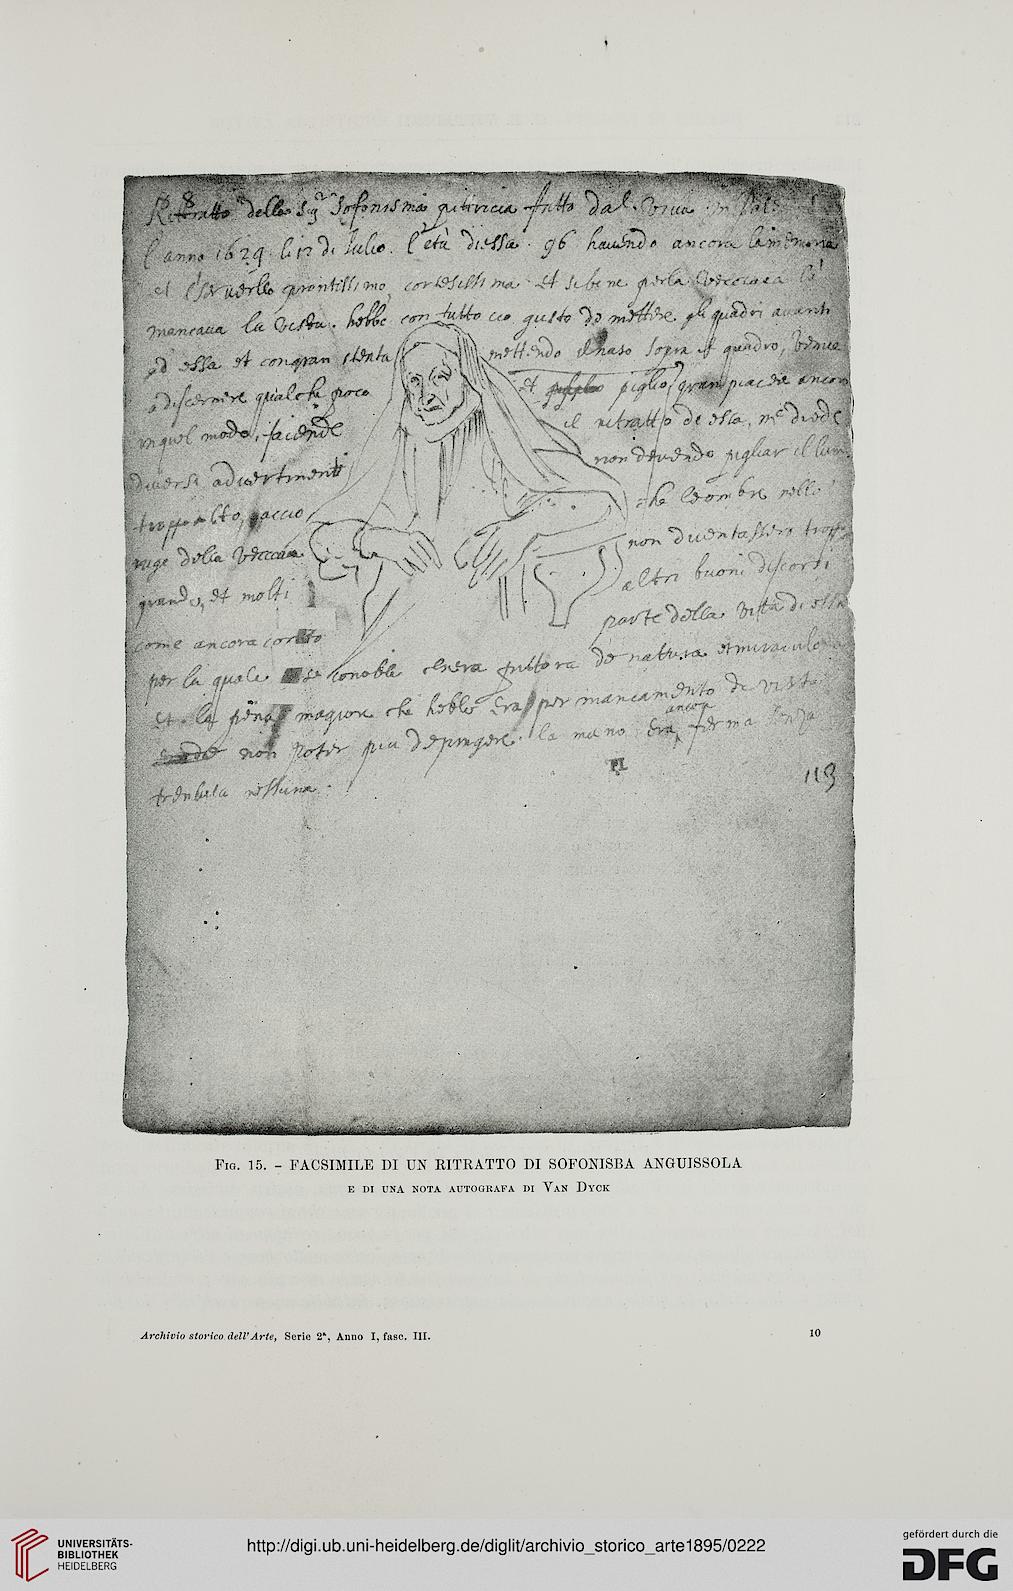 Rittratto della Sigra Sofonisma pittricia fatto dal vivo in
l'anno 1624 li 12 di Julio. l'età di essa 96 havendo ancora la memoria
et cervello prontissimo, cortesissima et sebene per la vecciaia la
mancava la vista. hebbe con tutto cio gusto de mettere gli quadri avanti
ad essa et con gran stenta mettendo il naso sopra il quadro, venne
a discernere qualche poco et piglio gran piacere ancora
in quel modo, facendo il ritratto de essa, me diede
diversi advertimenti non devendo pigliar il lume
troppo alto, accio che le ombre nelle
ruge della veccia non diventassero troppo
grande, et molti altri buoni discorsi
come ancora conto parte della vita di essa
per la quale se conobbe chera pittora de natura et miraculosa
et la pena magiore che hebbe era per mancamento de vista
non poter piu depingere. la mano era ancora ferma senza
trembula nessuna.
113
PL
Fig. 15. – FACSIMILE DI UN RITRATTO DI SOFONISBA ANGUISSOLA
E DI UNA NOTA AUTOGRAFA DI VAN DYCK
Archivio storico dell'Arte, Serie 2ª, Anno I, fasc. III.
10
UNIVERSITÄTS-
BIBLIOTHEK
HEIDELBERG
http://digi.ub.uni-heidelberg.de/diglit/archivio_storico_arte1895/0222
gefördert durch die
DFG